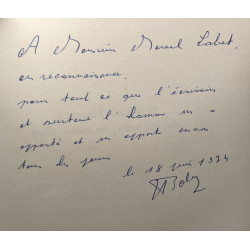 A Monsieur Marcel Labet,
en reconnaissance,
pour tout ce que l'écrivain
et surtout l'homme m'a
apporté et m'apporte encore
tous les jours
le 18 juin 1974